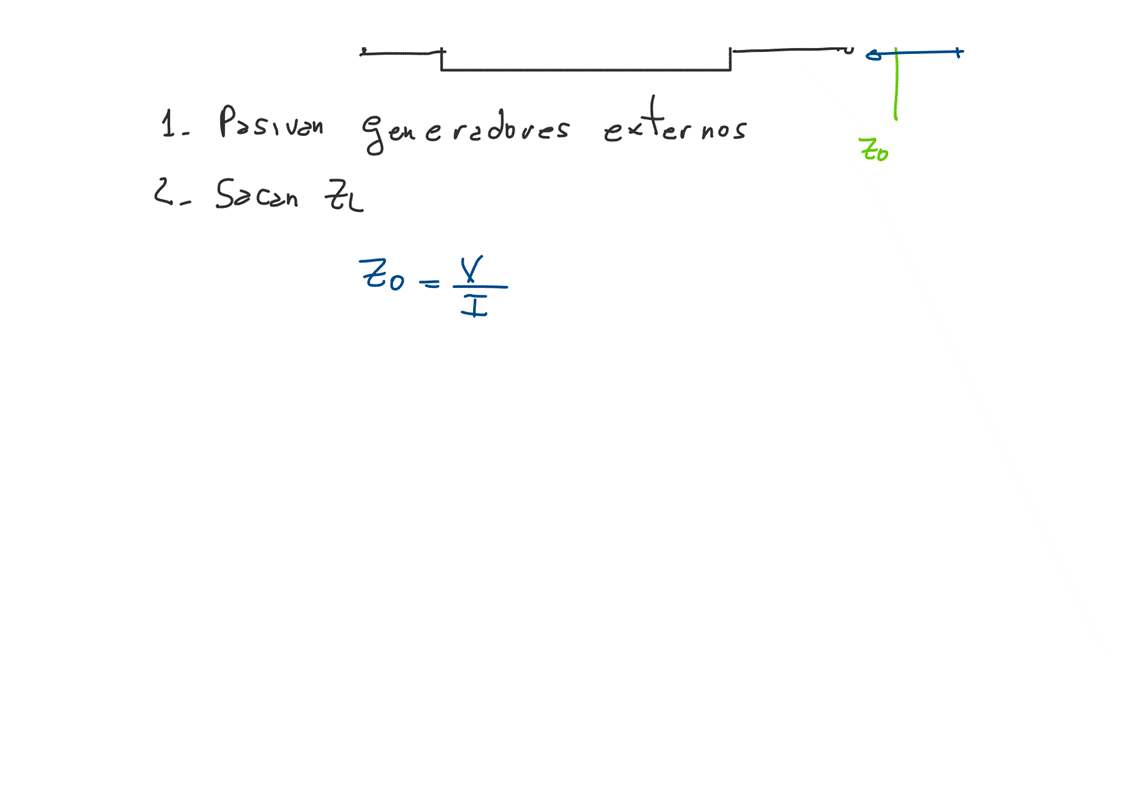 1- Pasivan generadores externos
Zo
2- Sacan ZL
Zo = V / I